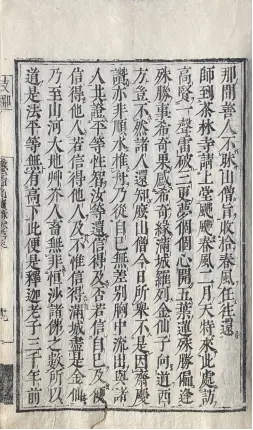 那間善人不昧山僧官收拾春風任往還
師到茶林寺請上堂颺颺春風二月天特來此處訪
高賢一聲雷破三更夢個個心開五葉蓮殊勝偏逢
殊勝事希奇果感希奇緣滿城羅列金仙子向道西
方豈不然諸人還知麼山僧今日所舉不是因齋慶
讚亦非順水推舟乃從自己無差別胸中流出與諸
人共證平等性智汝等還信得及否若信自己及便
信得他人若信得他人及不惟信得滿城盡是金仙
乃至山河大地艸芥人畜無非恒沙諸佛之數所以
道是法平等無有高下此便是釋迦老子三千年前